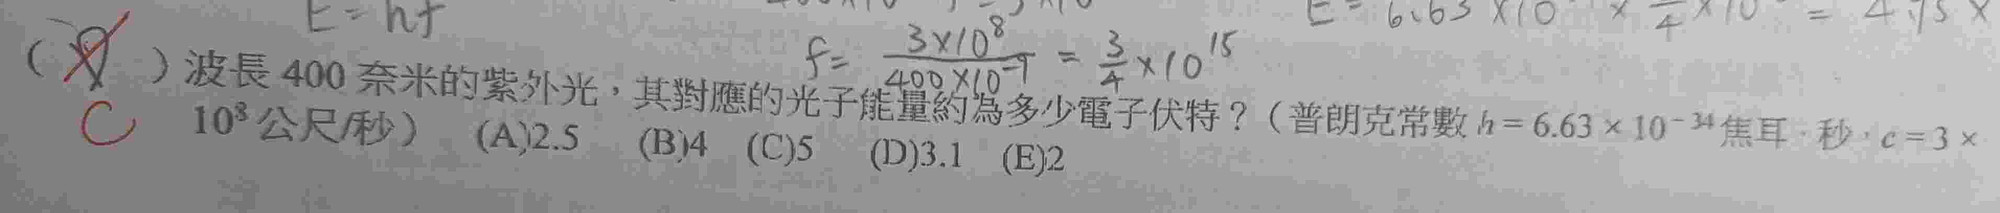 E = hf
f = 3×10⁸ / 400×10⁻⁹ = 3/4 ×10¹⁵
( ) 波長 400 奈米的紫外光，其對應的光子能量約為多少電子伏特？（普朗克常數 h = 6.63 × 10⁻³⁴ 焦耳．秒，c = 3 ×
C 10⁸ 公尺/秒） (A)2.5 (B)4 (C)5 (D)3.1 (E)2